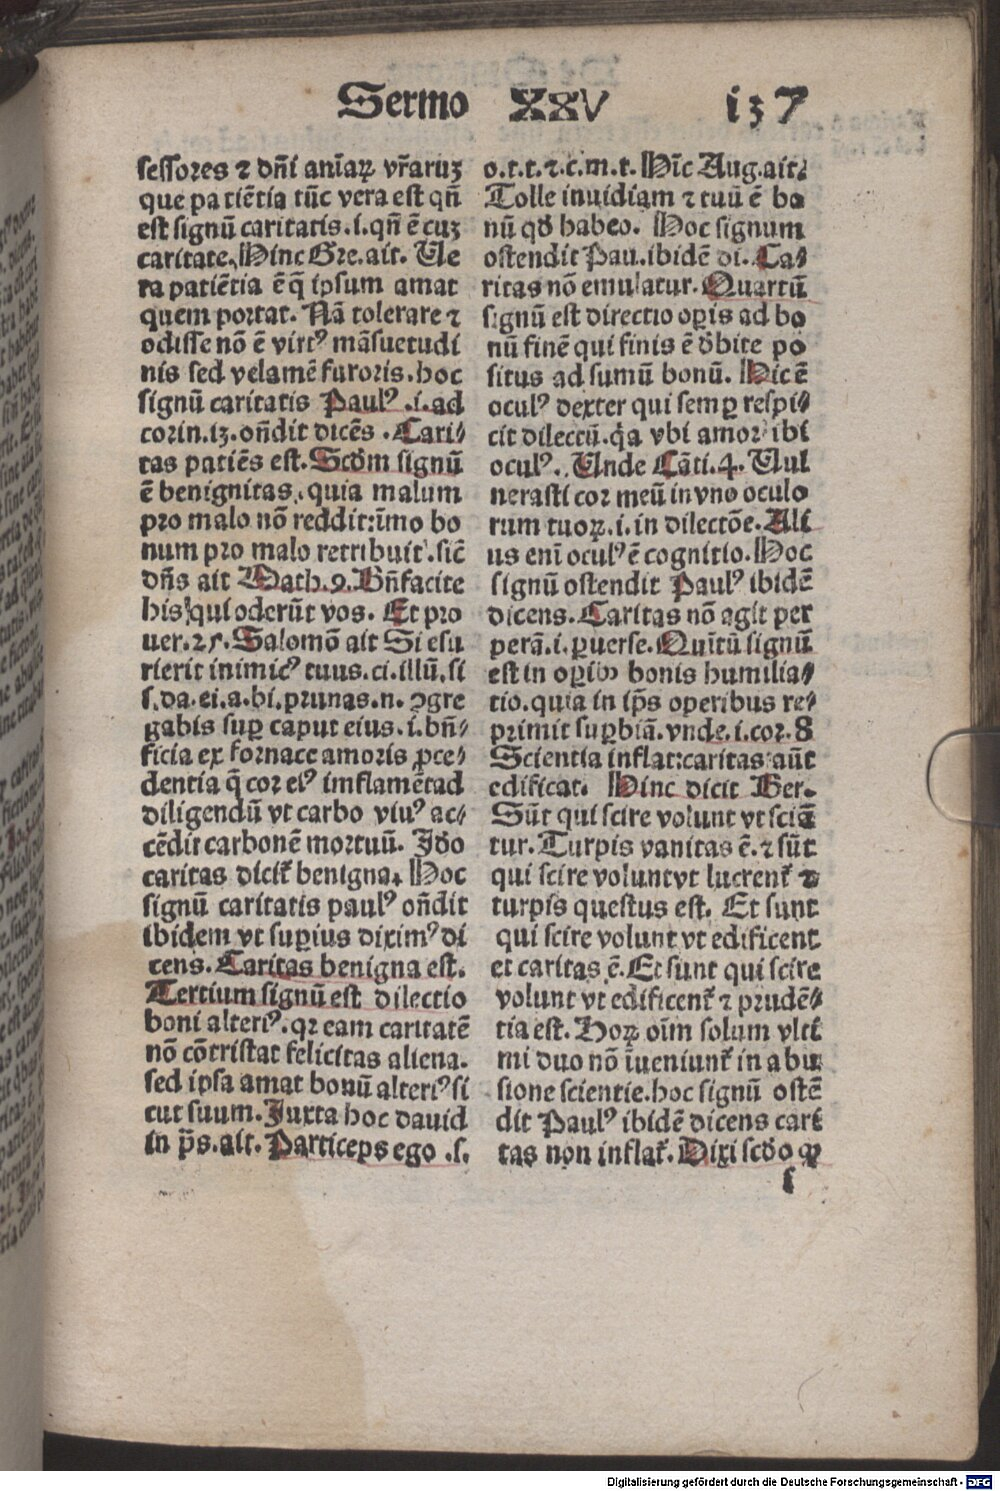 Sermo XXV 137
sessores ⁊ dn̄i anīaꝝ vr̄arūꝫ
que patiētia tūc vera est qn̄
est signū caritatis.i.qn̄ ē cuꝫ
caritate. Hinc Gre.ait. Ue
ra patiētia ē q̄ ipsum amat
quem portat. Nā tolerare ⁊
odisse nō ē virtꝰ māsuetudi
nis sed velamē furoris.hoc
signū caritatis Paulꝰ .i.ad
corin.13.on̄dit dicēs .Cari⸗
tas patiēs est. Scd̄m signū
ē benignitas. quia malum
pro malo nō reddit:īmo bo
num pro malo retribuit.sic̄
dn̄s ait Math.9. Bn̄facite
his qui oderūt vos. Et pro
uer.25. Salomō ait Si esu
rierit inimicꝰ tuus.ci.illū.si
s.da.ei.a.bi.prunas.n.ꝯgre
gabis suꝑ caput eius.i.bn̄⸗
ficia ex fornace amoris ꝓce⸗
dentia q̄ cor eiꝰ inflamēt ad
diligendū vt carbo viuꝰ ac⸗
cēdit carbonē mortuū. Id̄o
caritas dicit᷑ benigna. Hoc
signū caritatis paulꝰ on̄dit
ibidem vt suꝑius diximꝰ di
cens. Caritas benigna est.
Tertium signū est dilectio
boni alteriꝰ.qꝛ eam caritatē
nō cōtristat felicitas aliena.
sed ipsa amat bonū alteriꝰ si
cut suum. Iuxta hoc dauid
in p̄s.ait. Particeps ego .s.
o.t.t.⁊.c.m.t. Hīc Aug.ait.
Tolle inuidiam ⁊ tuū ē bo
nū qd̄ habeo. Hoc signum
ostendit Pau.ibidē di. Ca⸗
ritas nō emulatur. Quartū
signū est directio oꝑis ad bo
nū finē qui finis ē d̄bite po
situs ad sumū bonū. Hic ē
oculꝰ dexter qui semꝑ respi⸗
cit dilectū. q̇a vbi amor ibi
oculꝰ. Unde Cāti.4. Uul
nerasti cor meū in vno oculo
rum tuoꝝ.i. in dilectōe. Ali
us enī oculꝰ ē cognitio. Hoc
signū ostendit Paulꝰ ibidē
dicens. Caritas nō agit per
perā.i.ꝑuerse. Quītū signū
est in oꝑibꝰ bonis humilia⸗
tio. quia in ip̄s operibus re⸗
primit suꝑbiā. vnde.i.cor.8
Scientia inflat:caritas aūt
edificat. Hinc dicit Ber.
Sūt qui scire volunt vt sciā
tur. Turpis vanitas ē. ⁊ sūt
qui scire volunt vt lucrent᷑ ⁊
turpis questus est. Et sunt
qui scire volunt vt edificent
et caritas ē. Et sunt qui scire
volunt vt edificent᷑ ⁊ prudē⸗
tia est. Hoꝝ oīm solum vlti
mi duo nō īueniunt᷑ in abu
sione scientie. hoc signū ostē
dit Paulꝰ ibidē dicens cari
tas non inflat᷑. Dixi scd̄o ꝙ
s
Digitalisierung gefördert durch die Deutsche Forschungsgemeinschaft - DFG